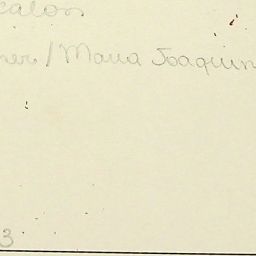 calon
ner / Maria Joaquin
3